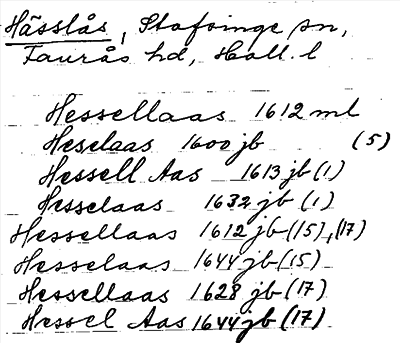 Hässlås, Stafsinge sn,
Faurås hd, Hall. l
Hessellaas 1612 ml
Heselaas 1600 jb (5)
Hessell Aas 1613 jb (1)
Hesselaas 1632 jb (1)
Hessellaas 1612 jb (15), (17)
Hesselaas 1644 jb (15)
Hessellaas 1628 jb (17)
Hessel Aas 1644 jb (17)